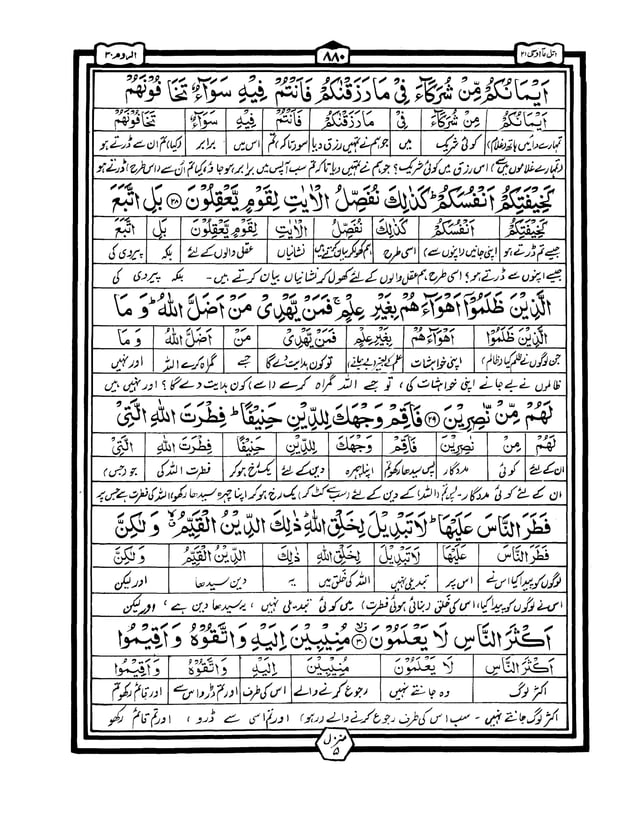 اتل ما اوحی ۲۱ ۸۸۰ الروم ۳۰
اَيْمَانُكُمْ مِّنْ شُرَكَآءَ فِىْ مَا رَزَقْنٰكُمْ فَاَنْتُمْ فِيْهِ سَوَآءٌ تَخَافُوْنَهُمْ
اَيْمَانُكُمْ مِّنْ شُرَكَآءَ فِىْ مَا رَزَقْنٰكُمْ فَاَنْتُمْ فِيْهِ سَوَآءٌ تَخَافُوْنَهُمْ
تمہارے دائیں ہاتھ (غلام) کوئی شریک میں جو ہم نے تمہیں رزق دیا سو (تاکہ) تم اس میں برابر (کیا) تم ان سے ڈرتے ہو
(تمہارے غلاموں میں سے) اس رزق میں کوئی شریک؟ جو ہم نے تمہیں دیا تاکہ تم سب آپس میں برابر ہو جاؤ، کیا تم ان سے (اس طرح) ڈرتے ہو
كَخِيْفَتِكُمْ اَنْفُسَكُمْ كَذٰلِكَ نُفَصِّلُ الْاٰيٰتِ لِقَوْمٍ يَّعْقِلُوْنَ ۲۸ بَلِ اتَّبَعَ
كَخِيْفَتِكُمْ اَنْفُسَكُمْ كَذٰلِكَ نُفَصِّلُ الْاٰيٰتِ لِقَوْمٍ يَّعْقِلُوْنَ بَلِ اتَّبَعَ
جیسے تم ڈرتے ہو اپنی جانیں (اپنوں سے) اسی طرح ہم کھول کر بیان کرتے ہیں نشانیاں عقل والوں کے لئے بلکہ پیروی کی
جیسے اپنوں سے ڈرتے ہو؟ اسی طرح ہم عقل والوں کے لئے کھول کر نشانیاں بیان کرتے ہیں۔ بلکہ پیروی کی
الَّذِيْنَ ظَلَمُوْٓا اَهْوَآءَهُمْ بِغَيْرِ عِلْمٍ فَمَنْ يَّهْدِىْ مَنْ اَضَلَّ اللّٰهُ وَمَا
الَّذِيْنَ ظَلَمُوْٓا اَهْوَآءَهُمْ بِغَيْرِ عِلْمٍ فَمَنْ يَّهْدِىْ مَنْ اَضَلَّ اللّٰهُ وَمَا
جن لوگوں نے ظلم کیا (ظالم) اپنی خواہشات علم کے بغیر (بے جانے) تو کون ہدایت دے گا جسے گمراہ کرے اللہ اور نہیں
ظالموں نے بے جانے اپنی خواہشات کی، تو جسے اللہ گمراہ کرے (اسے) کون ہدایت دے گا؟ اور نہیں ہیں
لَهُمْ مِّنْ نّٰصِرِيْنَ ۲۹ فَاَقِمْ وَجْهَكَ لِلدِّيْنِ حَنِيْفًا فِطْرَتَ اللّٰهِ الَّتِىْ
لَهُمْ مِّنْ نّٰصِرِيْنَ فَاَقِمْ وَجْهَكَ لِلدِّيْنِ حَنِيْفًا فِطْرَتَ اللّٰهِ الَّتِىْ
ان کے لئے کوئی مددگار پس سیدھا رکھو تم اپنا چہرہ دین کے لئے یک رخ ہو کر فطرت اللہ کی جو (جس)
ان کے لئے کوئی مددگار۔ پس تم (اللہ) کے دین کے لئے (سب سے کٹ کر) یک رخ ہو کر اپنا چہرہ سیدھا رکھو، اللہ کی فطرت ہے جس پر
فَطَرَ النَّاسَ عَلَيْهَا لَا تَبْدِيْلَ لِخَلْقِ اللّٰهِ ذٰلِكَ الدِّيْنُ الْقَيِّمُ وَلٰكِنَّ
فَطَرَ النَّاسَ عَلَيْهَا لَا تَبْدِيْلَ لِخَلْقِ اللّٰهِ ذٰلِكَ الدِّيْنُ الْقَيِّمُ وَلٰكِنَّ
لوگوں کو پیدا کیا اس نے اس پر تبدیلی نہیں اللہ کی خلق میں یہ دین سیدھا اور لیکن
اس نے لوگوں کو پیدا کیا، اس کی خلق (بنائی ہوئی فطرت) میں کوئی تبدیلی نہیں، یہ سیدھا دین ہے، اور لیکن
اَكْثَرَ النَّاسِ لَا يَعْلَمُوْنَ ۳۰ مُنِيْبِيْنَ اِلَيْهِ وَاتَّقُوْهُ وَاَقِيْمُوا
اَكْثَرَ النَّاسِ لَا يَعْلَمُوْنَ مُنِيْبِيْنَ اِلَيْهِ وَاتَّقُوْهُ وَاَقِيْمُوا
اکثر لوگ وہ جانتے نہیں رجوع کرنے والے اس کی طرف اور تم ڈرو اس سے اور قائم رکھو تم
اکثر لوگ جانتے نہیں۔ سب اس کی طرف رجوع کرنے والے رہو، اور تم اسی سے ڈرو، اور تم قائم رکھو
منزل ۵